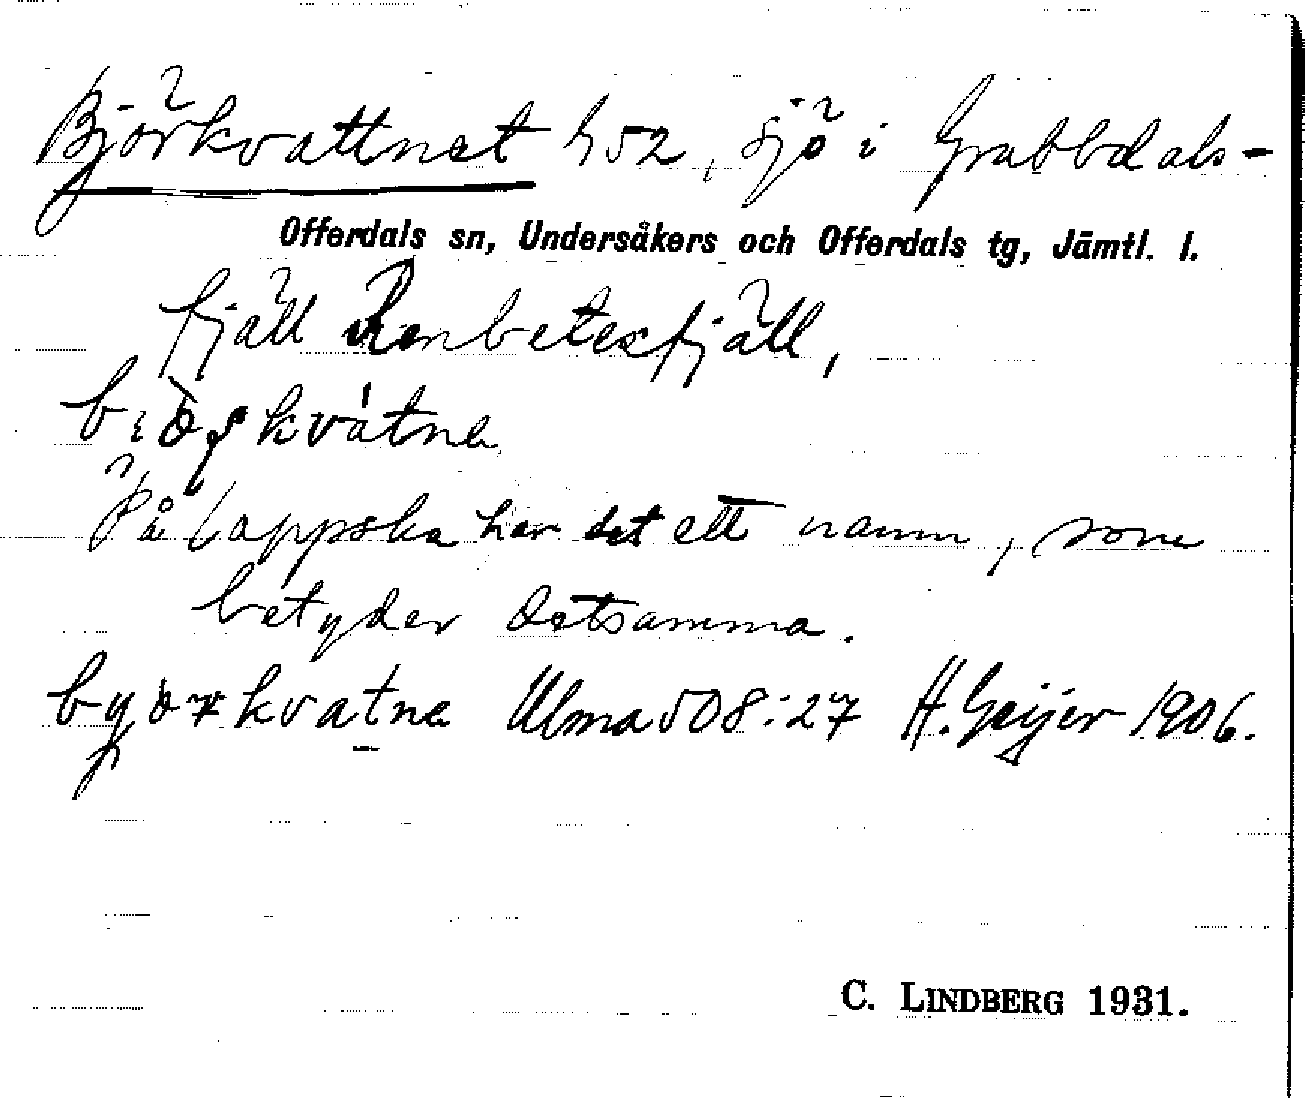 Björkvattnet h52, sjö i Grubbdals-
Offerdals sn, Undersåkers och Offerdals tg, Jämtl. l.
fjäll Renbetesfjäll,
På lappska har det ett namn, som
betyder detsamma.
Ulma 508:27 H. Geijer 1906.
C. LINDBERG 1931.